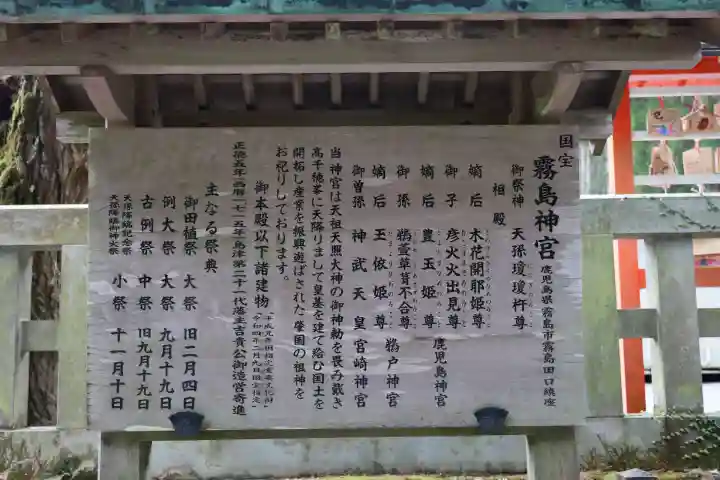 国宝
霧島神宮 鹿児島県霧島市霧島田口鎮座
御祭神 天孫瓊瓊杵尊
相殿
嫡后 木花開耶姫尊
御子 彦火火出見尊 鹿児島神宮
嫡后 豊玉姫尊
御孫 鵜葺草葺不合尊 鵜戸神宮
嫡后 玉依姫尊
御曽孫 神武天皇 宮崎神宮
当神宮は天祖天照大神の御神勅を畏み戴き
高千穂峯に天降りまして皇基を建て給む国土を
開拓し産業を振興遊ばされた 肇国の祖神を
お祀りしております。
御本殿以下諸建物
平成元年国指定重要文化財
令和四年二月九日国宝指定
正徳五年西暦一七一五年島津第二十一代藩主吉貴公御造営寄進
主なる祭典
御田植祭 大祭 旧二月四日
例大祭 大祭 九月十九日
古例祭 中祭 旧九月十九日
天孫降臨記念祭
天孫降臨御神火祭 小祭 十一月十日